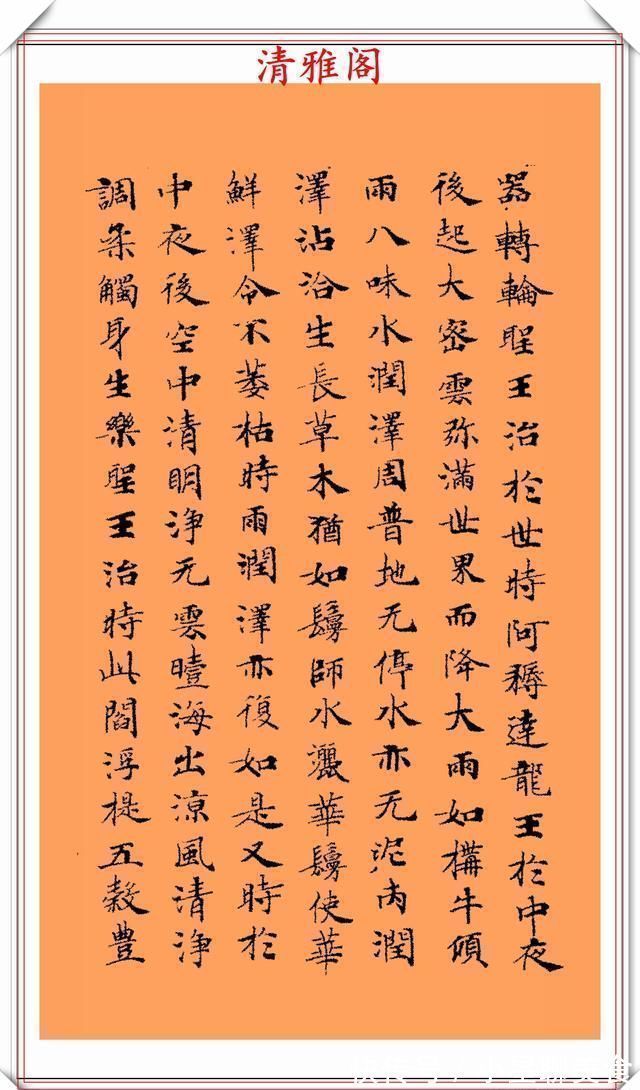 清雅阁
器轉輪聖王治於世時阿耨達龍王於中夜
後起大密雲弥滿世界而降大雨如構牛頃
雨八味水潤澤周普地无停水亦无泥洿潤
澤沾洽生長草木猶如鬘師水灑華鬘使華
鮮澤令不萎枯時雨潤澤亦復如是又時於
中夜後空中清明净无雲曀海出涼風清净
調柔觸身生樂聖王治時此閻浮提五穀豊